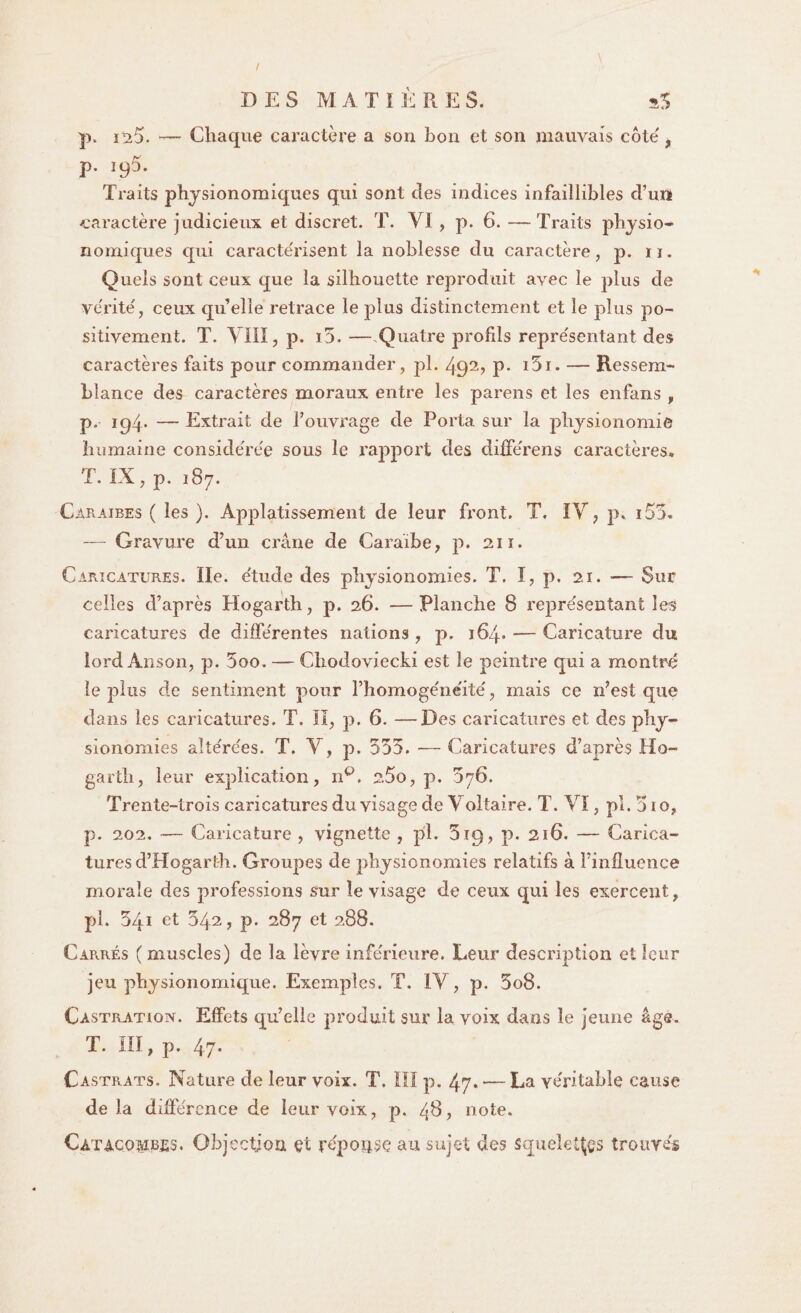 DES MATIÈRES. 23
p. 125. — Chaque caractère a son bon et son mauvais côté,
p. 195.
Traits physionomiques qui sont des indices infaillibles d'un
caractère judicieux et discret. T. VI, p. 6. — Traits physio-
nomiques qui caractérisent la noblesse du caractère, p. 11.
Quels sont ceux que la silhouette reproduit avec le plus de
vérité, ceux qu'elle retrace le plus distinctement et le plus po-
sitivement. T. VIII, p. 13. — Quatre profils représentant des
caractères faits pour commander, pl. 492, p. 131. — Ressem-
blance des caractères moraux entre les parens et les enfans,
p. 194. — Extrait de l'ouvrage de Porta sur la physionomie
humaine considérée sous le rapport des différens caractères.
T. IX, p. 187.
CARAIBES ( les ). Applatissement de leur front. T. IV, p. 153.
— Gravure d'un crâne de Caraïbe, p. 211.
CARICATURES. IIe. étude des physionomies. T. I, p. 21. — Sur
celles d'après Hogarth, p. 26. — Planche 8 représentant les
caricatures de différentes nations, p. 164. — Caricature du
lord Anson, p. 300. — Chodoviecki est le peintre qui a montré
le plus de sentiment pour l'homogénéité, mais ce n'est que
dans les caricatures. T. II, p. 6. — Des caricatures et des phy-
sionomies altérées. T. V, p. 333. — Caricatures d'après Ho-
garth, leur explication, nº. 250, p. 376.
Trente-trois caricatures du visage de Voltaire. T. VI, pl. 310,
p. 202. — Caricature, vignette, pl. 319, p. 216. — Carica-
tures d'Hogarth. Groupes de physionomies relatifs à l'influence
morale des professions sur le visage de ceux qui les exercent,
pl. 341 et 342, p. 287 et 288.
CARRÉS ( muscles) de la lèvre inférieure. Leur description et leur
jeu physionomique. Exemples. T. IV, p. 308.
CASTRATION. Effets qu'elle produit sur la voix dans le jeune âge.
T. III, p. 47.
CASTRATS. Nature de leur voix. T. III p. 47. — La véritable cause
de la différence de leur voix, p. 48, note.
CATACOMBES. Objection et réponse au sujet des squelettes trouvés